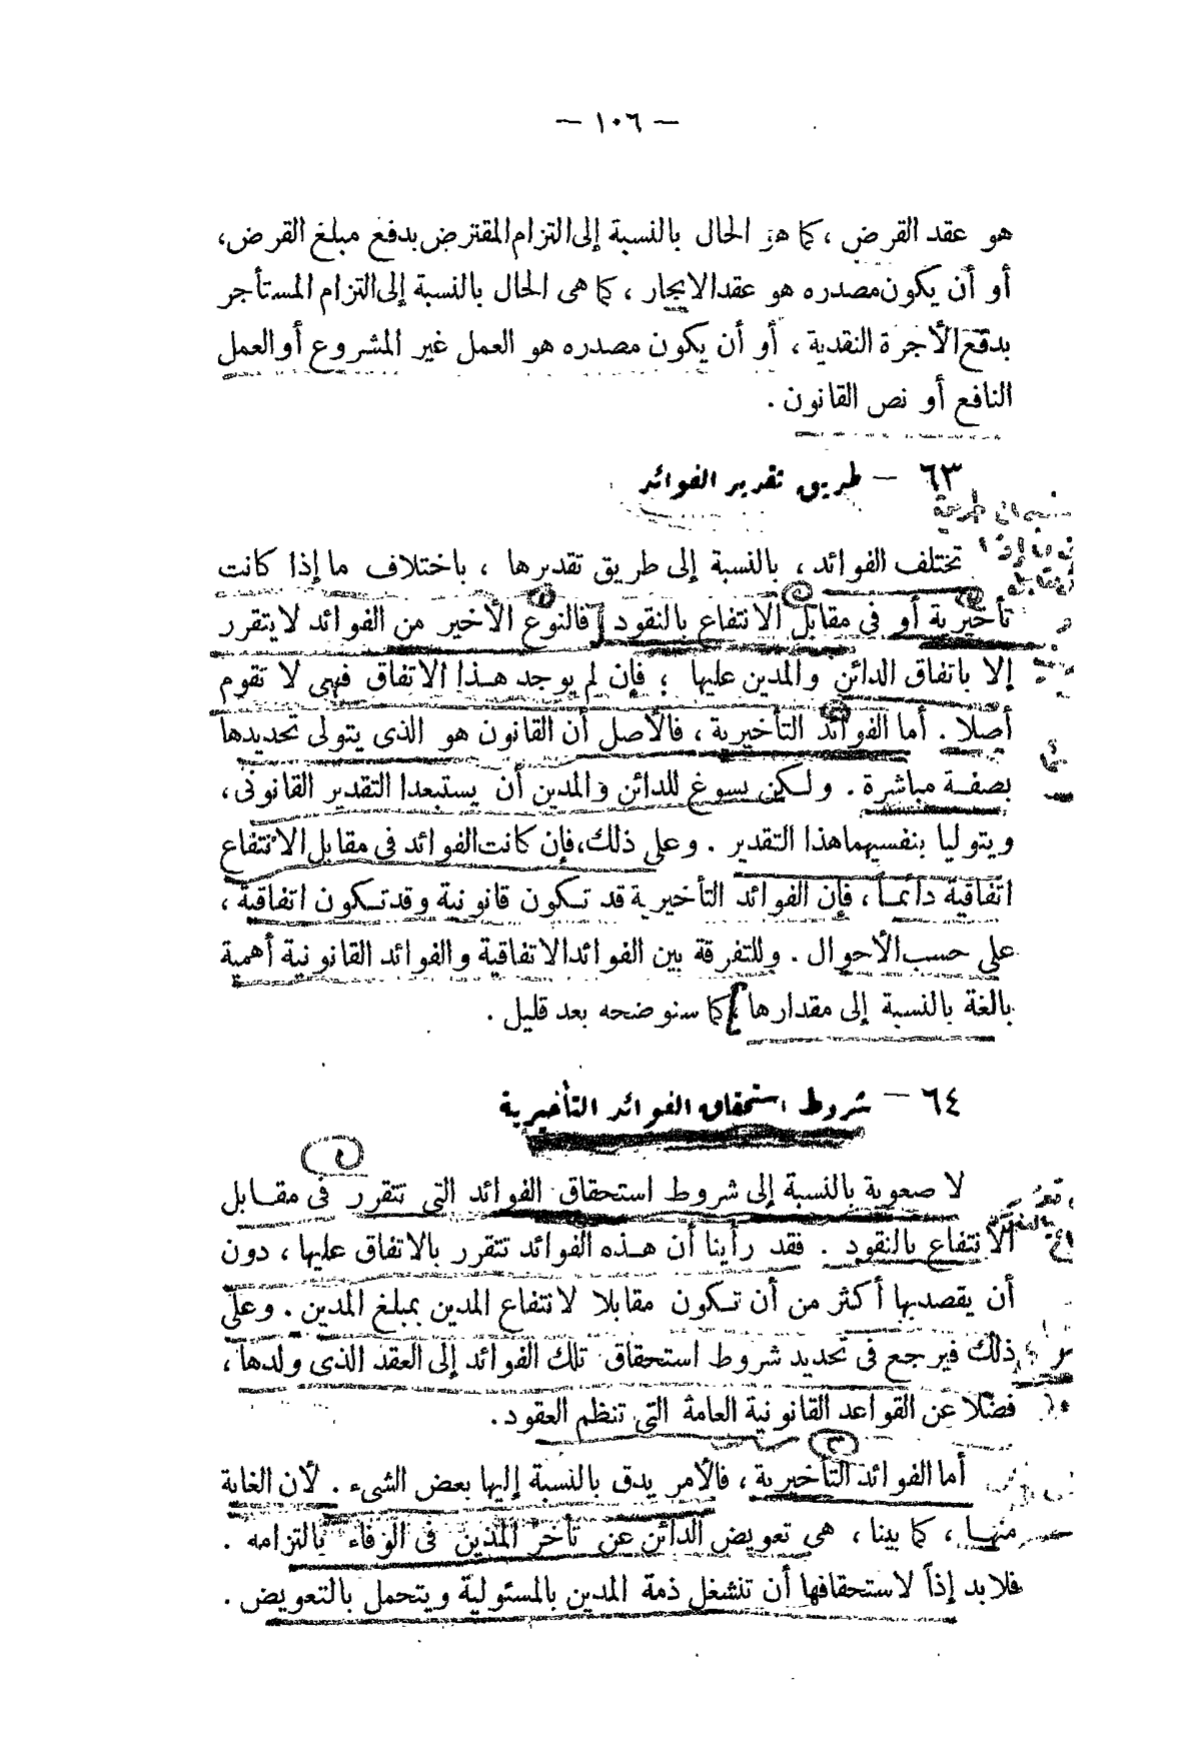 — ١٠٦ —
هو عقد القرض ، كما هو الحال بالنسبة إلى التزام المقترض بدفع مبلغ القرض،
أو أن يكون مصدره هو عقد الايجار ، كما هى الحال بالنسبة إلى التزام المستأجر
بدفع الأجرة النقدية ، أو أن يكون مصدره هو العمل غير المشروع أو العمل
النافع أو نص القانون .
٦٣ — طريق تقدير الفوائد
تختلف الفوائد ، بالنسبة إلى طريق تقديرها ، باختلاف ما إذا كانت
تأخيرية أو فى مقابل الانتفاع بالنقود [ فالنوع الأخير من الفوائد لا يتقرر
إلا باتفاق الدائن والمدين عليها ؛ فإن لم يوجد هـذا الاتفاق فهى لا تقوم
أصلا . أما الفوائد التأخيرية ، فالأصل أن القانون هو الذى يتولى تحديدها
بصفـة مباشرة . ولـكن يسوغ للدائن والمدين أن يستبعدا التقدير القانونى ،
ويتوليا بنفسيهما هذا التقدير . وعلى ذلك، فإن كانت الفوائد فى مقابل الانتفاع
اتفاقية دائمـاً ، فإن الفوائد التأخيرية قد تـكون قانونية وقد تـكون اتفاقية ،
على حسب الأحوال . وللتفرقة بين الفوائد الاتفاقية والفوائد القانونية أهمية
بالغة بالنسبة إلى مقدارها ] كما سنوضحه بعد قليل .
٦٤ — شروط استحقاق الفوائد التأخيرية
لا صعوبة بالنسبة إلى شروط استحقاق الفوائد التى تتقرر فى مقـابل
الانتفاع بالنقود . فقد رأينا أن هـذه الفوائد تتقرر بالاتفاق عليها ، دون
أن يقصد بها أكثر من أن تـكون مقابلا لانتفاع المدين بمبلغ المدين . وعلى
ذلك فيرجع فى تحديد شروط استحقاق تلك الفوائد إلى العقد الذى ولدها ،
فضلا عن القواعد القانونية العامة التى تنظم العقود.
أما الفوائد التأخيرية ، فالأمر يدق بالنسبة إليها بعض الشىء . لأن الغاية
منهـا ، كما بينا ، هى تعويض الدائن عن تأخر المدين فى الوفاء بالتزامه .
فلابد إذاً لاستحقاقها أن تنشغل ذمة المدين بالمسئولية ويتحمل بالتعويض .